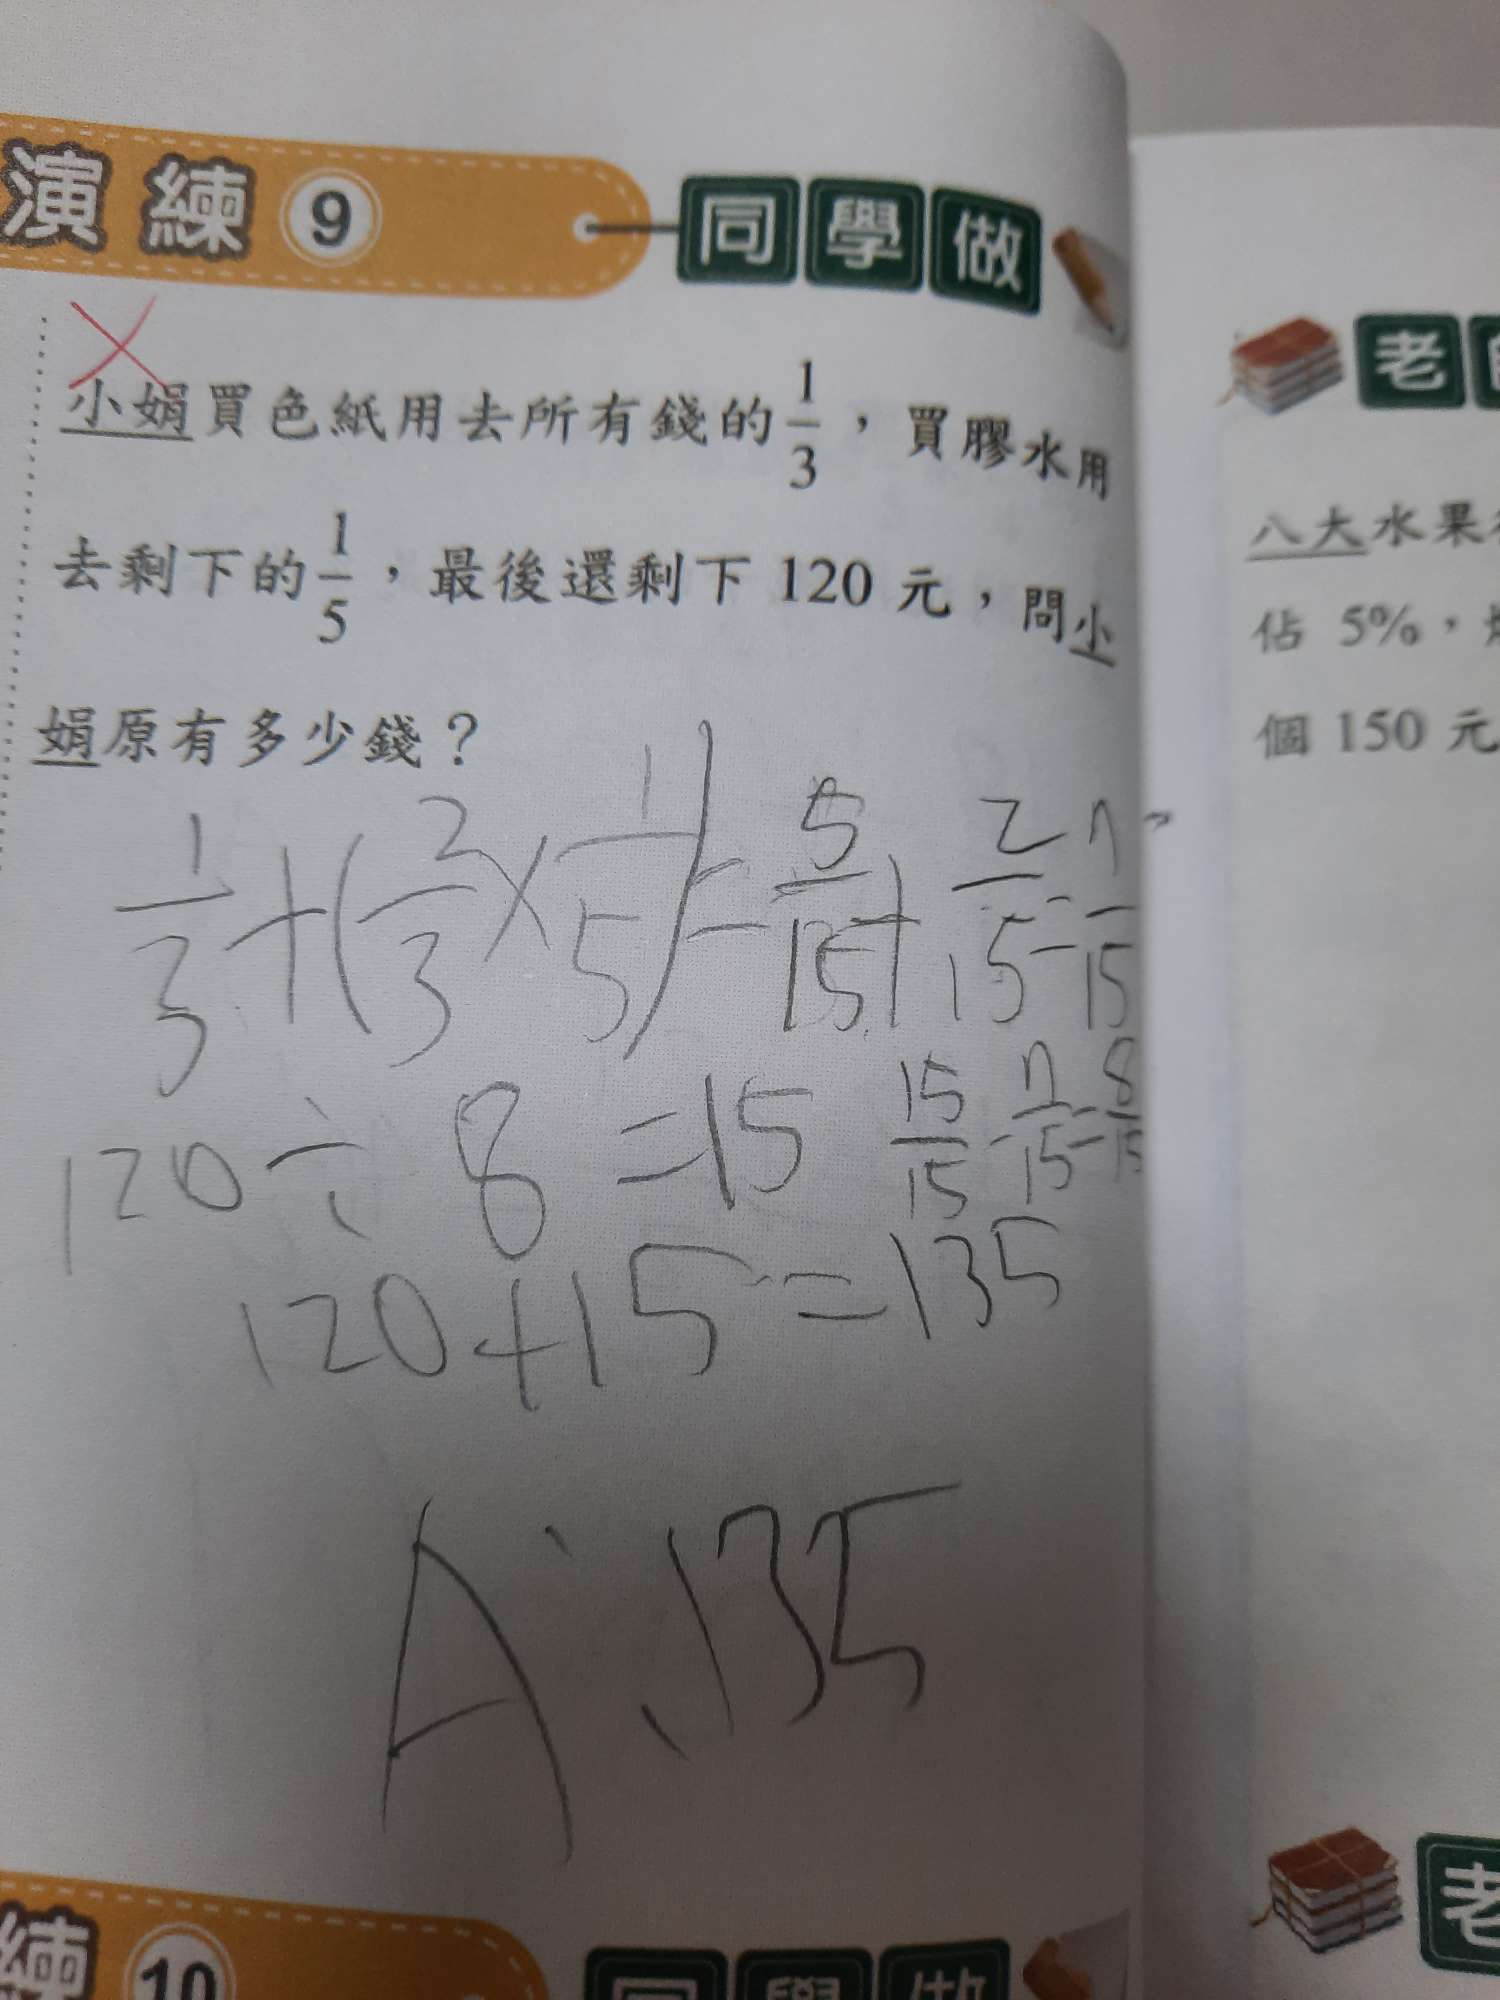 演練 9 同學做
小娟買色紙用去所有錢的1/3，買膠水用
去剩下的1/5，最後還剩下 120 元，問小
娟原有多少錢？
1/3+(2/3×1/5)=5/15+2/15=7/15
15/15-7/15=8/15
120÷8=15
120+15=135
A:135
練 10 同學做
老
八大水果
佔 5%，
個 150 元
老